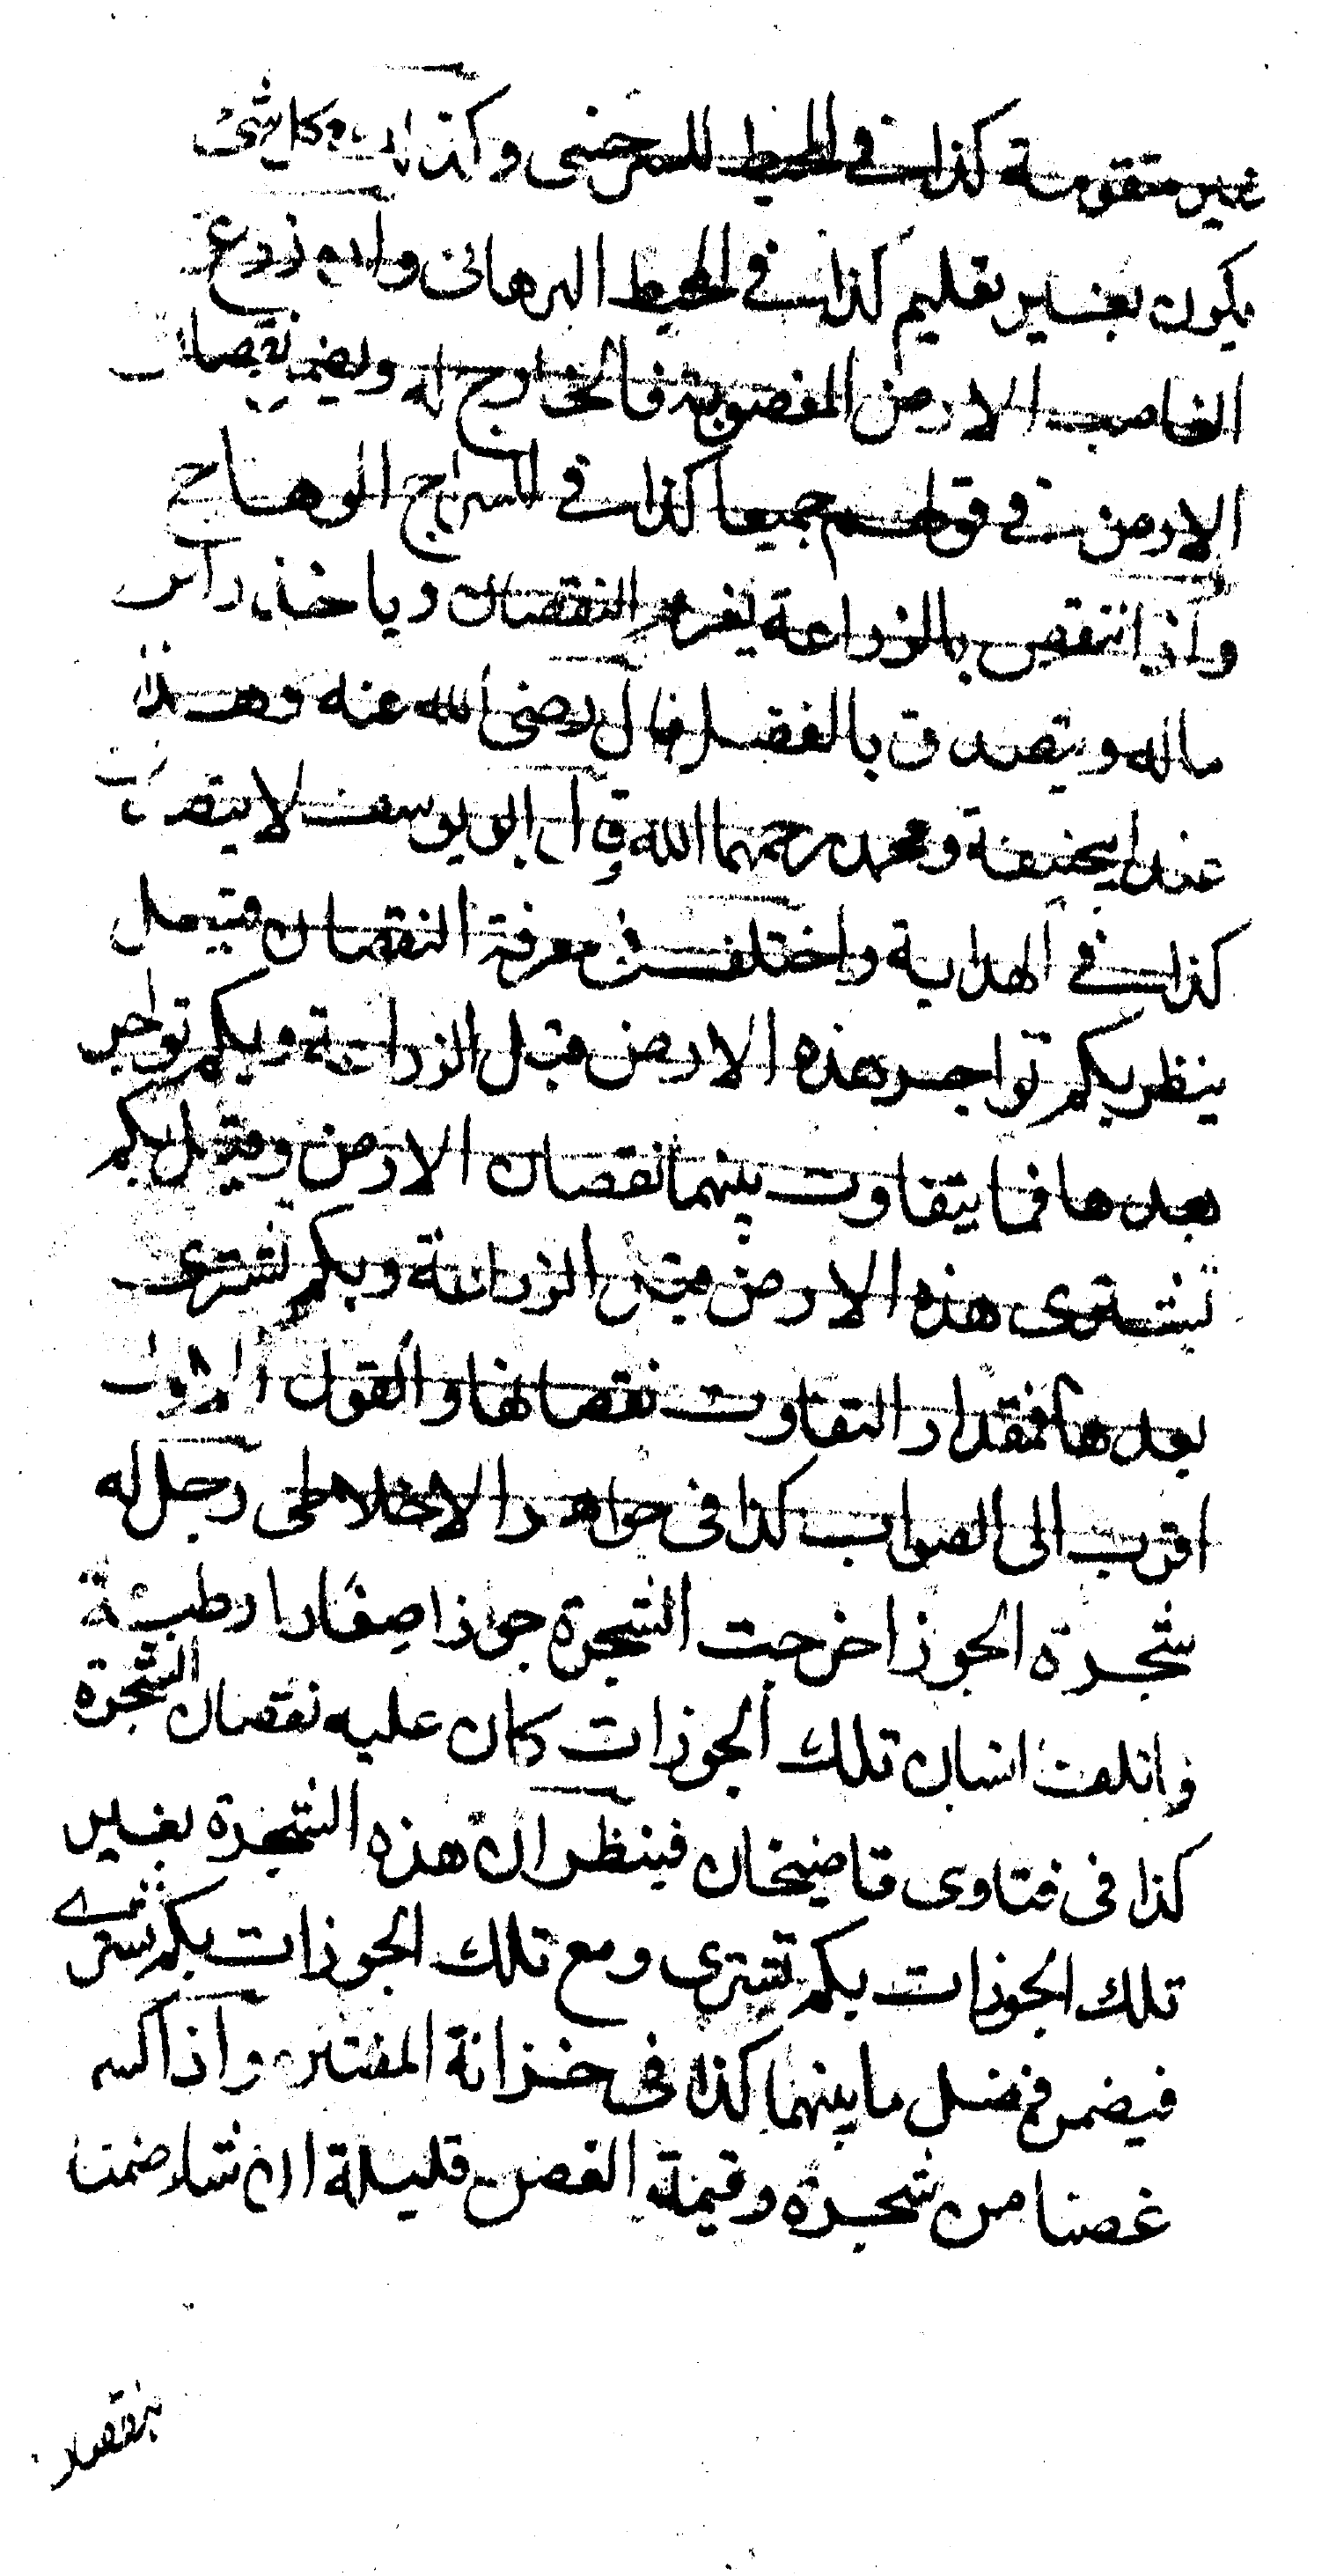 غير متقومة كذا في المحيط للسرخسى وكذلك كل شئ
يكون بغير تعليم كذا في المحيط البرهانى واذا زرع
الغاصب الارض المغصوبة فالخارج له ويضمن نقصان
الارض في قولهم جميعا كذا في السراج الوهاج
واذا انتقص بالزراعة يغرم النقصان وياخذ راس
ماله ويتصدق بالفضل قال رضى الله عنه وهذا
عند ابيحنيفة ومحمد رحمهما الله وقال ابو يوسف لا يتصدق
كذا في الهداية واختلف في معرفة النقصان قيل
ينظر بكم تواجر هذه الارض قبل الزراعة وبكم تواجر
بعدها فما يتفاوت بينهما نقصان الارض وقيل بكم
تشترى هذه الارض قبل الزراعة وبكم تشترى
بعدها فمقدار التفاوت نقصانها والقول الاول
اقرب الى الصواب كذا فى جواهر الاخلاطى رجل له
شجرة الجوز اخرجت الشجرة جوازا صغارا رطبة
واتلف انسان تلك الجوزات كان عليه نقصان الشجرة
كذا فى فتاوى قاضيخان فينظر ان هذه الشجرة بغير
تلك الجوزات بكم تشترى ومع تلك الجوزات بكم تشترى
فيضمن فضل ما بينهما كذا فى خزانة المفتين واذا كسر
غصنا من شجرة وقيمة الغصن قليلة ان شاء ضمنا